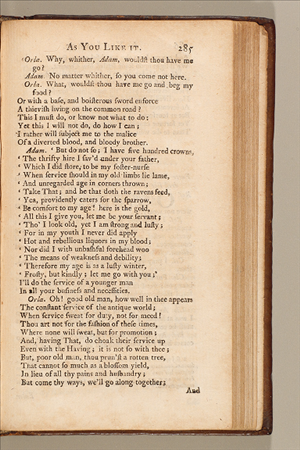 AS YOU LIKE IT. 285
Orla. Why, whither, Adam, wouldſt thou have me
go?
Adam. No matter whither, ſo you come not here.
Orla. What, wouldſt thou have me go and beg my
food?
Or with a baſe, and boiſterous ſword enforce
A thieviſh living on the common road?
This I muſt do, or know not what to do:
Yet this I will not do, do how I can;
I rather will ſubject me to the malice
Of a diverted blood, and bloody brother.
Adam. ' But do not ſo; I have five hundred crowns,
' The thrifty hire I ſav'd under your father,
' Which I did ſtore, to be my foſter-nurſe
' When ſervice ſhould in my old limbs lie lame,
' And unregarded age in corners thrown;
' Take That; and he that doth the ravens feed,
' Yea, providently caters for the ſparrow,
' Be comfort to my age! here is the gold,
' All this I give you, let me be your ſervant;
' Tho' I look old, yet I am ſtrong and luſty;
' For in my youth I never did apply
' Hot and rebellious liquors in my blood;
' Nor did I with unbaſhful forehead woo
' The means of weakneſs and debility;
' Therefore my age is as a luſty winter,
' Froſty, but kindly; let me go with you;'
I'll do the ſervice of a younger man
In all your buſineſs and neceſſities.
Orla. Oh! good old man, how well in thee appears
The conſtant ſervice of the antique world;
When ſervice ſweat for duty, not for meed!
Thou art not for the faſhion of theſe times,
Where none will ſweat, but for promotion;
And, having That, do choak their ſervice up
Even with the Having; it is not ſo with thee;
But, poor old man, thou prun'ſt a rotten tree,
That cannot ſo much as a bloſſom yield,
In lieu of all thy pains and huſbandry;
But come thy ways, we'll go along together;
And